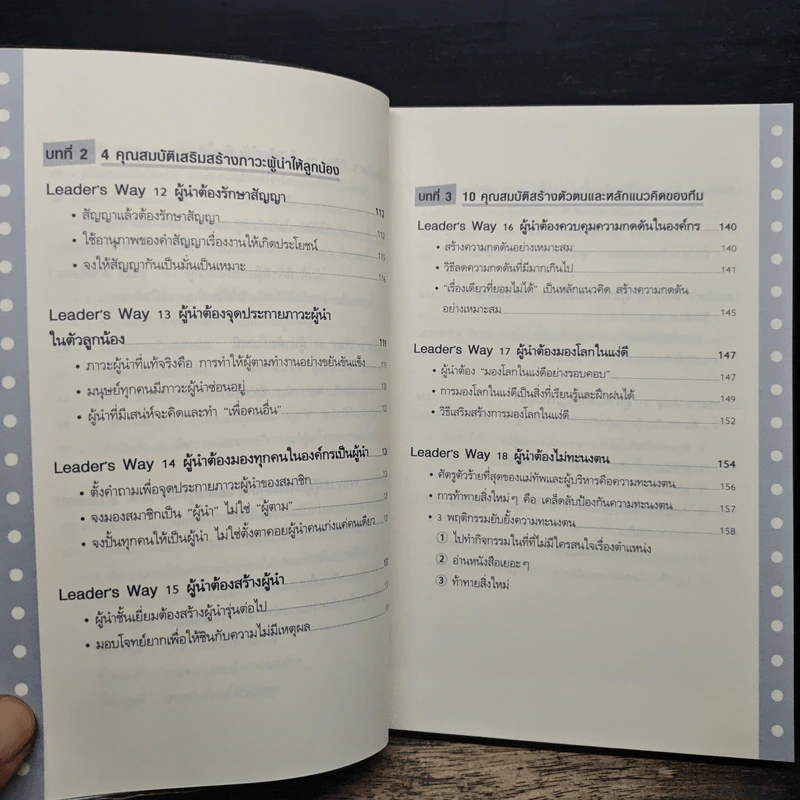 บทที่ 2 4 คุณสมบัติเสริมสร้างภาวะผู้นำให้ลูกน้อง
Leader's Way 12 ผู้นำต้องรักษาสัญญา 112
• สัญญาแล้วต้องรักษาสัญญา 112
• ใช้อานุภาพของคำสัญญาเรื่องงานให้เกิดประโยชน์ 115
• จงให้สัญญากันเป็นมั่นเป็นเหมาะ
Leader's Way 13 ผู้นำต้องจุดประกายภาวะผู้นำ
ในตัวลูกน้อง 119
• ภาวะผู้นำที่แท้จริงคือ การทำให้ผู้ตามทำงานอย่างขยันขันแข็ง
• มนุษย์ทุกคนมีภาวะผู้นำซ่อนอยู่
• ผู้นำที่มีเสน่ห์จะคิดและทำ “เพื่อคนอื่น”
Leader's Way 14 ผู้นำต้องมองทุกคนในองค์กรเป็นผู้นำ
• ตั้งคำถามเพื่อจุดประกายภาวะผู้นำของสมาชิก
• จงมองสมาชิกเป็น “ผู้นำ” ไม่ใช่ “ผู้ตาม”
• จงปั้นทุกคนให้เป็นผู้นำ ไม่ใช่ตั้งตาคอยผู้นำคนเก่งแค่คนเดียว
Leader's Way 15 ผู้นำต้องสร้างผู้นำ
• ผู้นำชั้นเยี่ยมต้องสร้างผู้นำรุ่นต่อไป
• มอบโจทย์ยากเพื่อให้ชินกับความไม่มีเหตุผล
บทที่ 3 10 คุณสมบัติสร้างตัวตนและหลักแนวคิดของทีม
Leader's Way 16 ผู้นำต้องควบคุมความกดดันในองค์กร 140
• สร้างความกดดันอย่างเหมาะสม 140
• วิธีลดความกดดันที่มีมากเกินไป 141
• “เรื่องเดียวที่ยอมไม่ได้” เป็นหลักแนวคิด สร้างความกดดัน
อย่างเหมาะสม 145
Leader's Way 17 ผู้นำต้องมองโลกในแง่ดี 147
• ผู้นำต้อง “มองโลกในแง่ดีอย่างรอบคอบ” 147
• การมองโลกในแง่ดีเป็นสิ่งที่เรียนรู้และฝึกฝนได้ 149
• วิธีเสริมสร้างการมองโลกในแง่ดี 152
Leader's Way 18 ผู้นำต้องไม่ทะนงตน 154
• ศัตรูตัวร้ายที่สุดของแม่ทัพและผู้บริหารคือความทะนงตน 156
• การท้าทายสิ่งใหม่ๆ คือ เคล็ดลับป้องกันความทะนงตน 157
• 3 พฤติกรรมยับยั้งความทะนงตน 158
① ไปทำกิจกรรมในที่ที่ไม่มีใครสนใจเรื่องตำแหน่ง
② อ่านหนังสือเยอะๆ
③ ท้าทายสิ่งใหม่